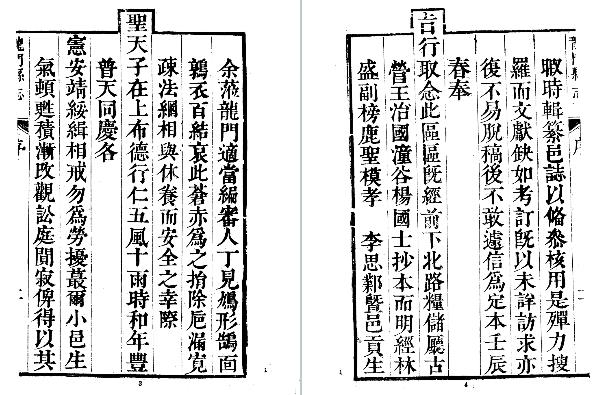 余蒞龍門適當編審人丁見鳩形鵠面
鶉衣百結哀此蒼赤為之捎除巵漏寬
疎法網相與休養而安全之幸際
聖天子在上布德行仁五風十雨時和年豐
普天同慶各
憲安靖綏緝相戒勿為勞擾蕞爾小邑生
氣頓甦積漸改觀訟庭閴寂俾得以其
龍門縣志
序
二
3
暇時輯纂邑誌以俻叅核用是殫力搜
羅而文獻缺如考訂旣以未詳訪求亦
復不易脫稿後不敢遽信為定本壬辰
春奉
旨行取念此區區旣經前下北路糧儲廳古
營王治國潼谷楊國士抄本而明經林
盛副榜鹿聖模孝 李思鄴曁邑貢生
4